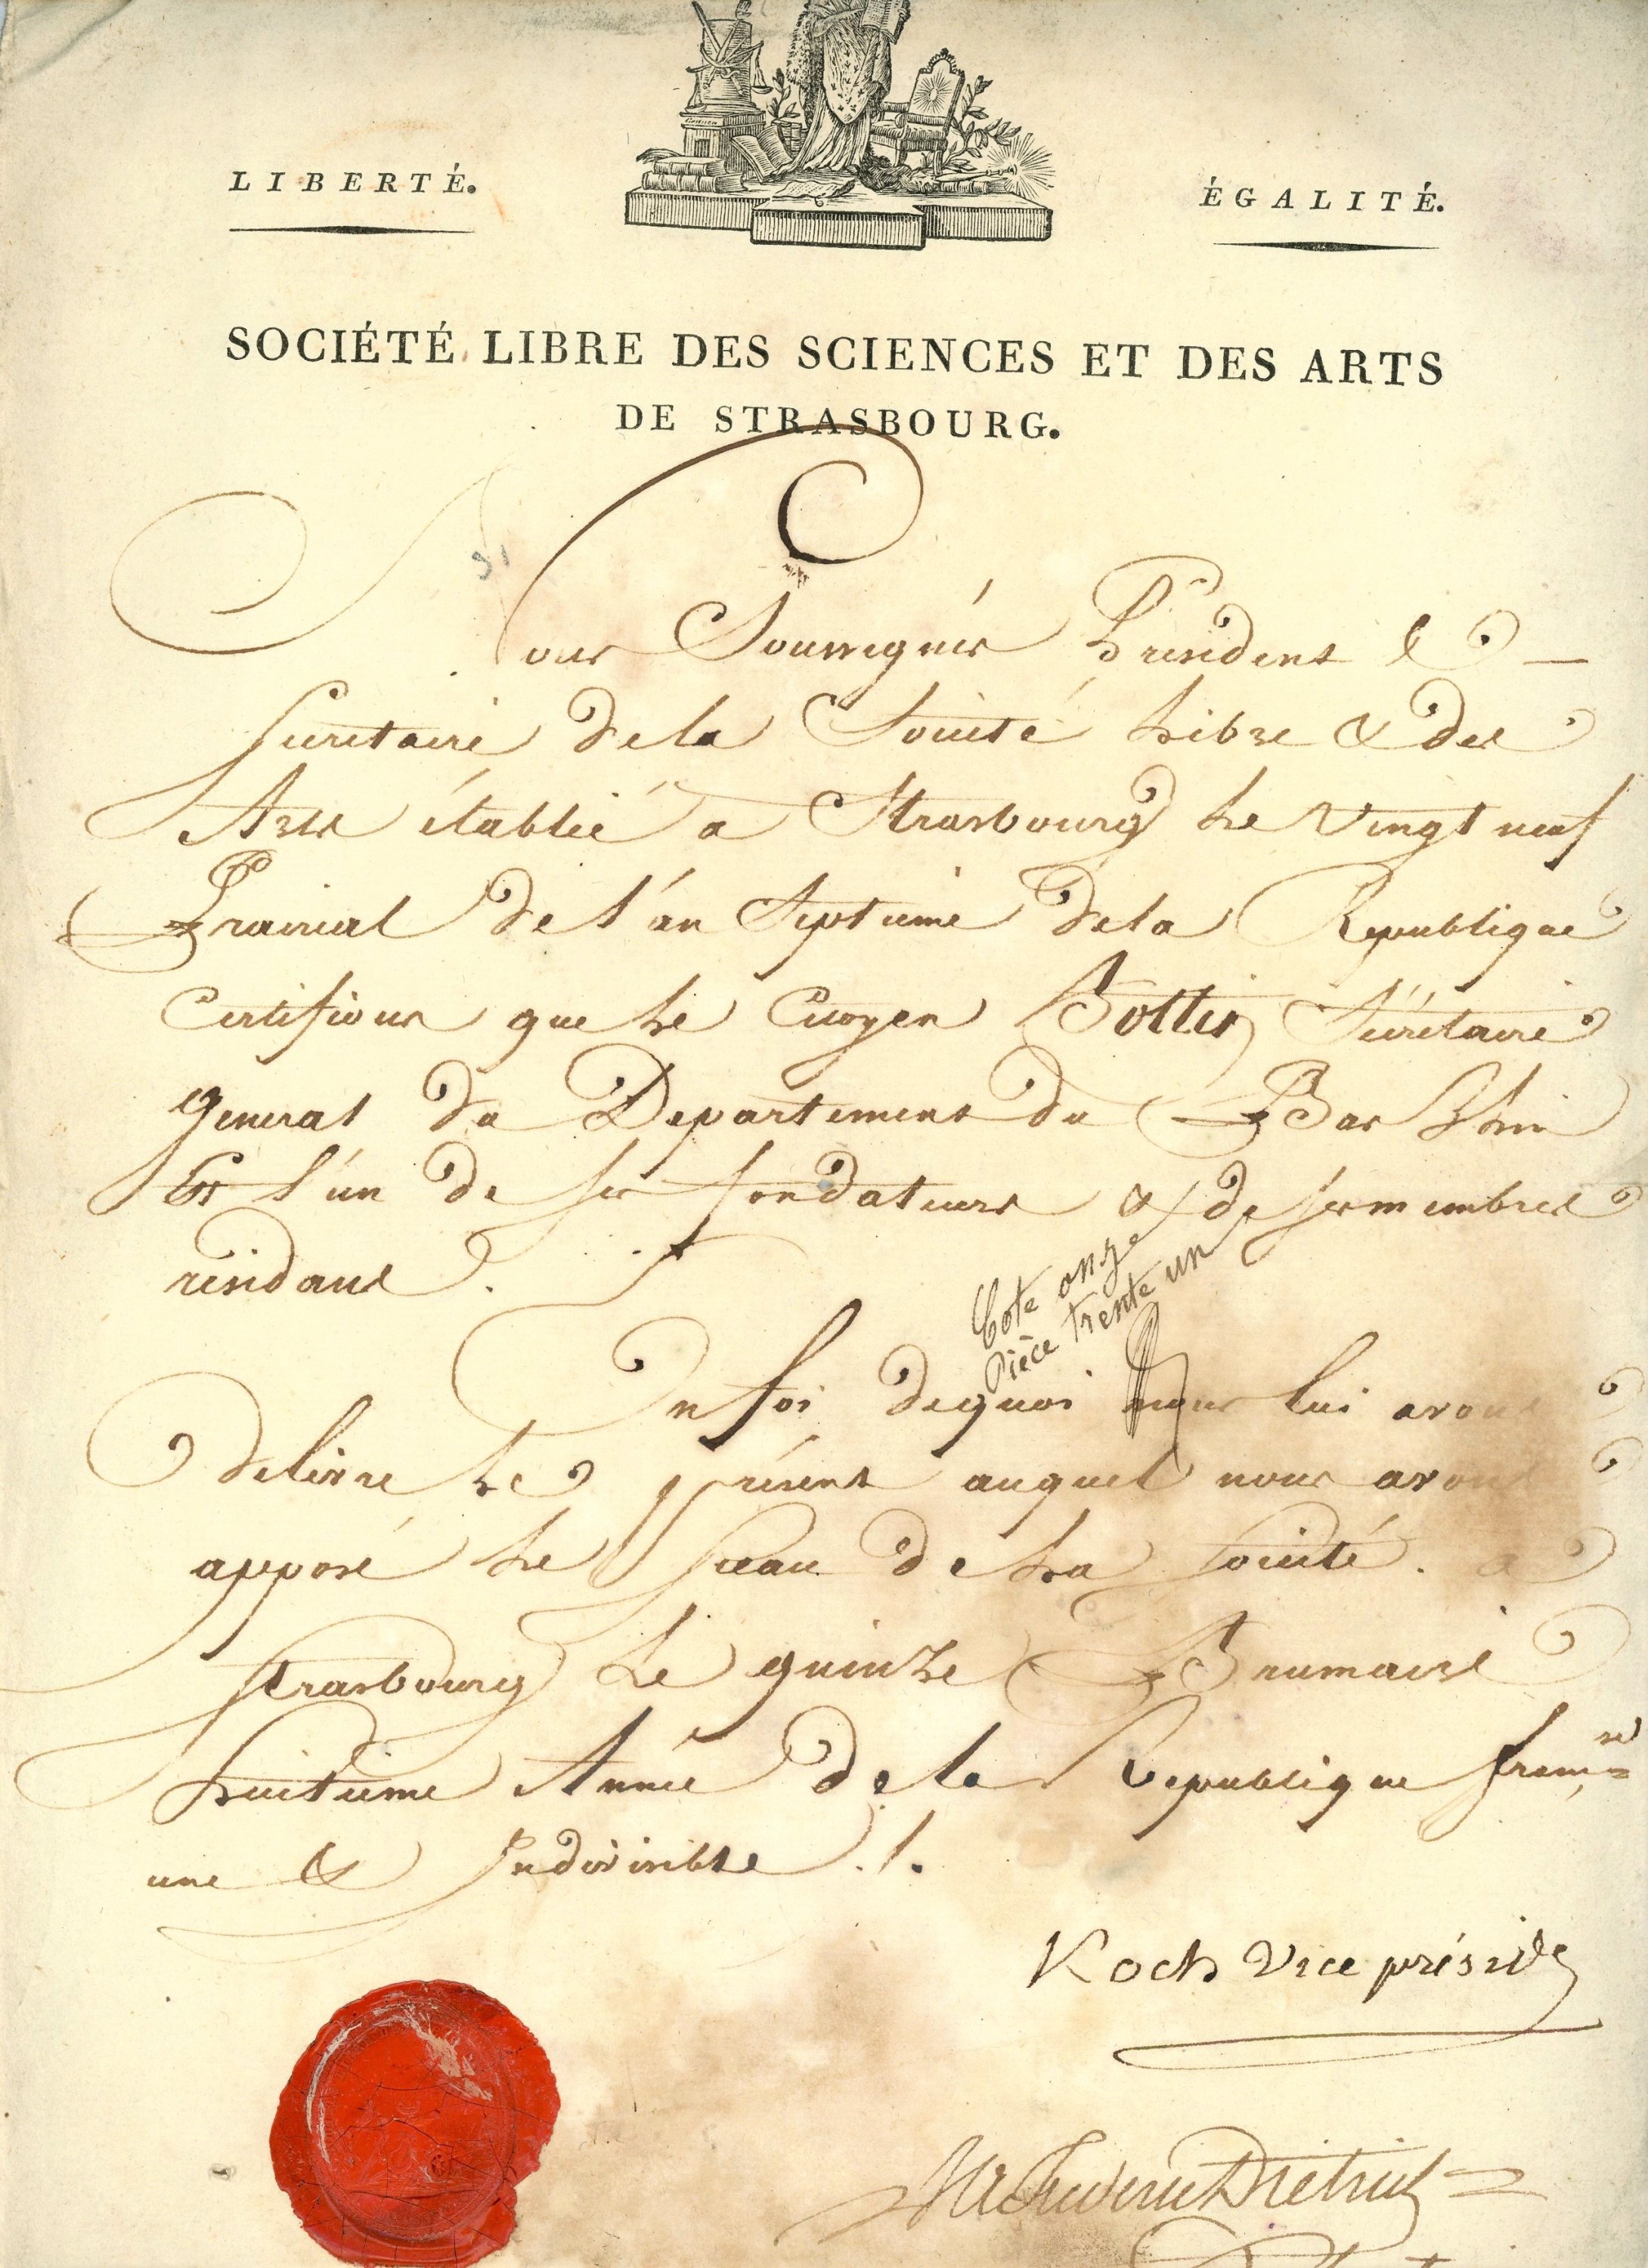 LIBERTÉ.
ÉGALITÉ.
SOCIÉTÉ LIBRE DES SCIENCES ET DES ARTS
DE STRASBOURG.
31
Nous Soussignés Président &
Secrétaire de la Société Libre & des
Arts établie à Strasbourg le vingt neuf
Prairial de l'an Septieme dela Republique
Certifions que le Citoyen Bottin Sécrétaire
general du Departement du Bas Rhin
Est l'un de ses fondateurs & de ses membres
résidans.
Cote onze
Pièce trente un
En foi dequoi nous lui avons
delivré le présent auquel nous avons
apposé le Sceau de La Société. a
Strasbourg le quinze Brumaire
huitieme Année de la Republique
une & Indivisible ./.
Koch Vice présid
Dietrich